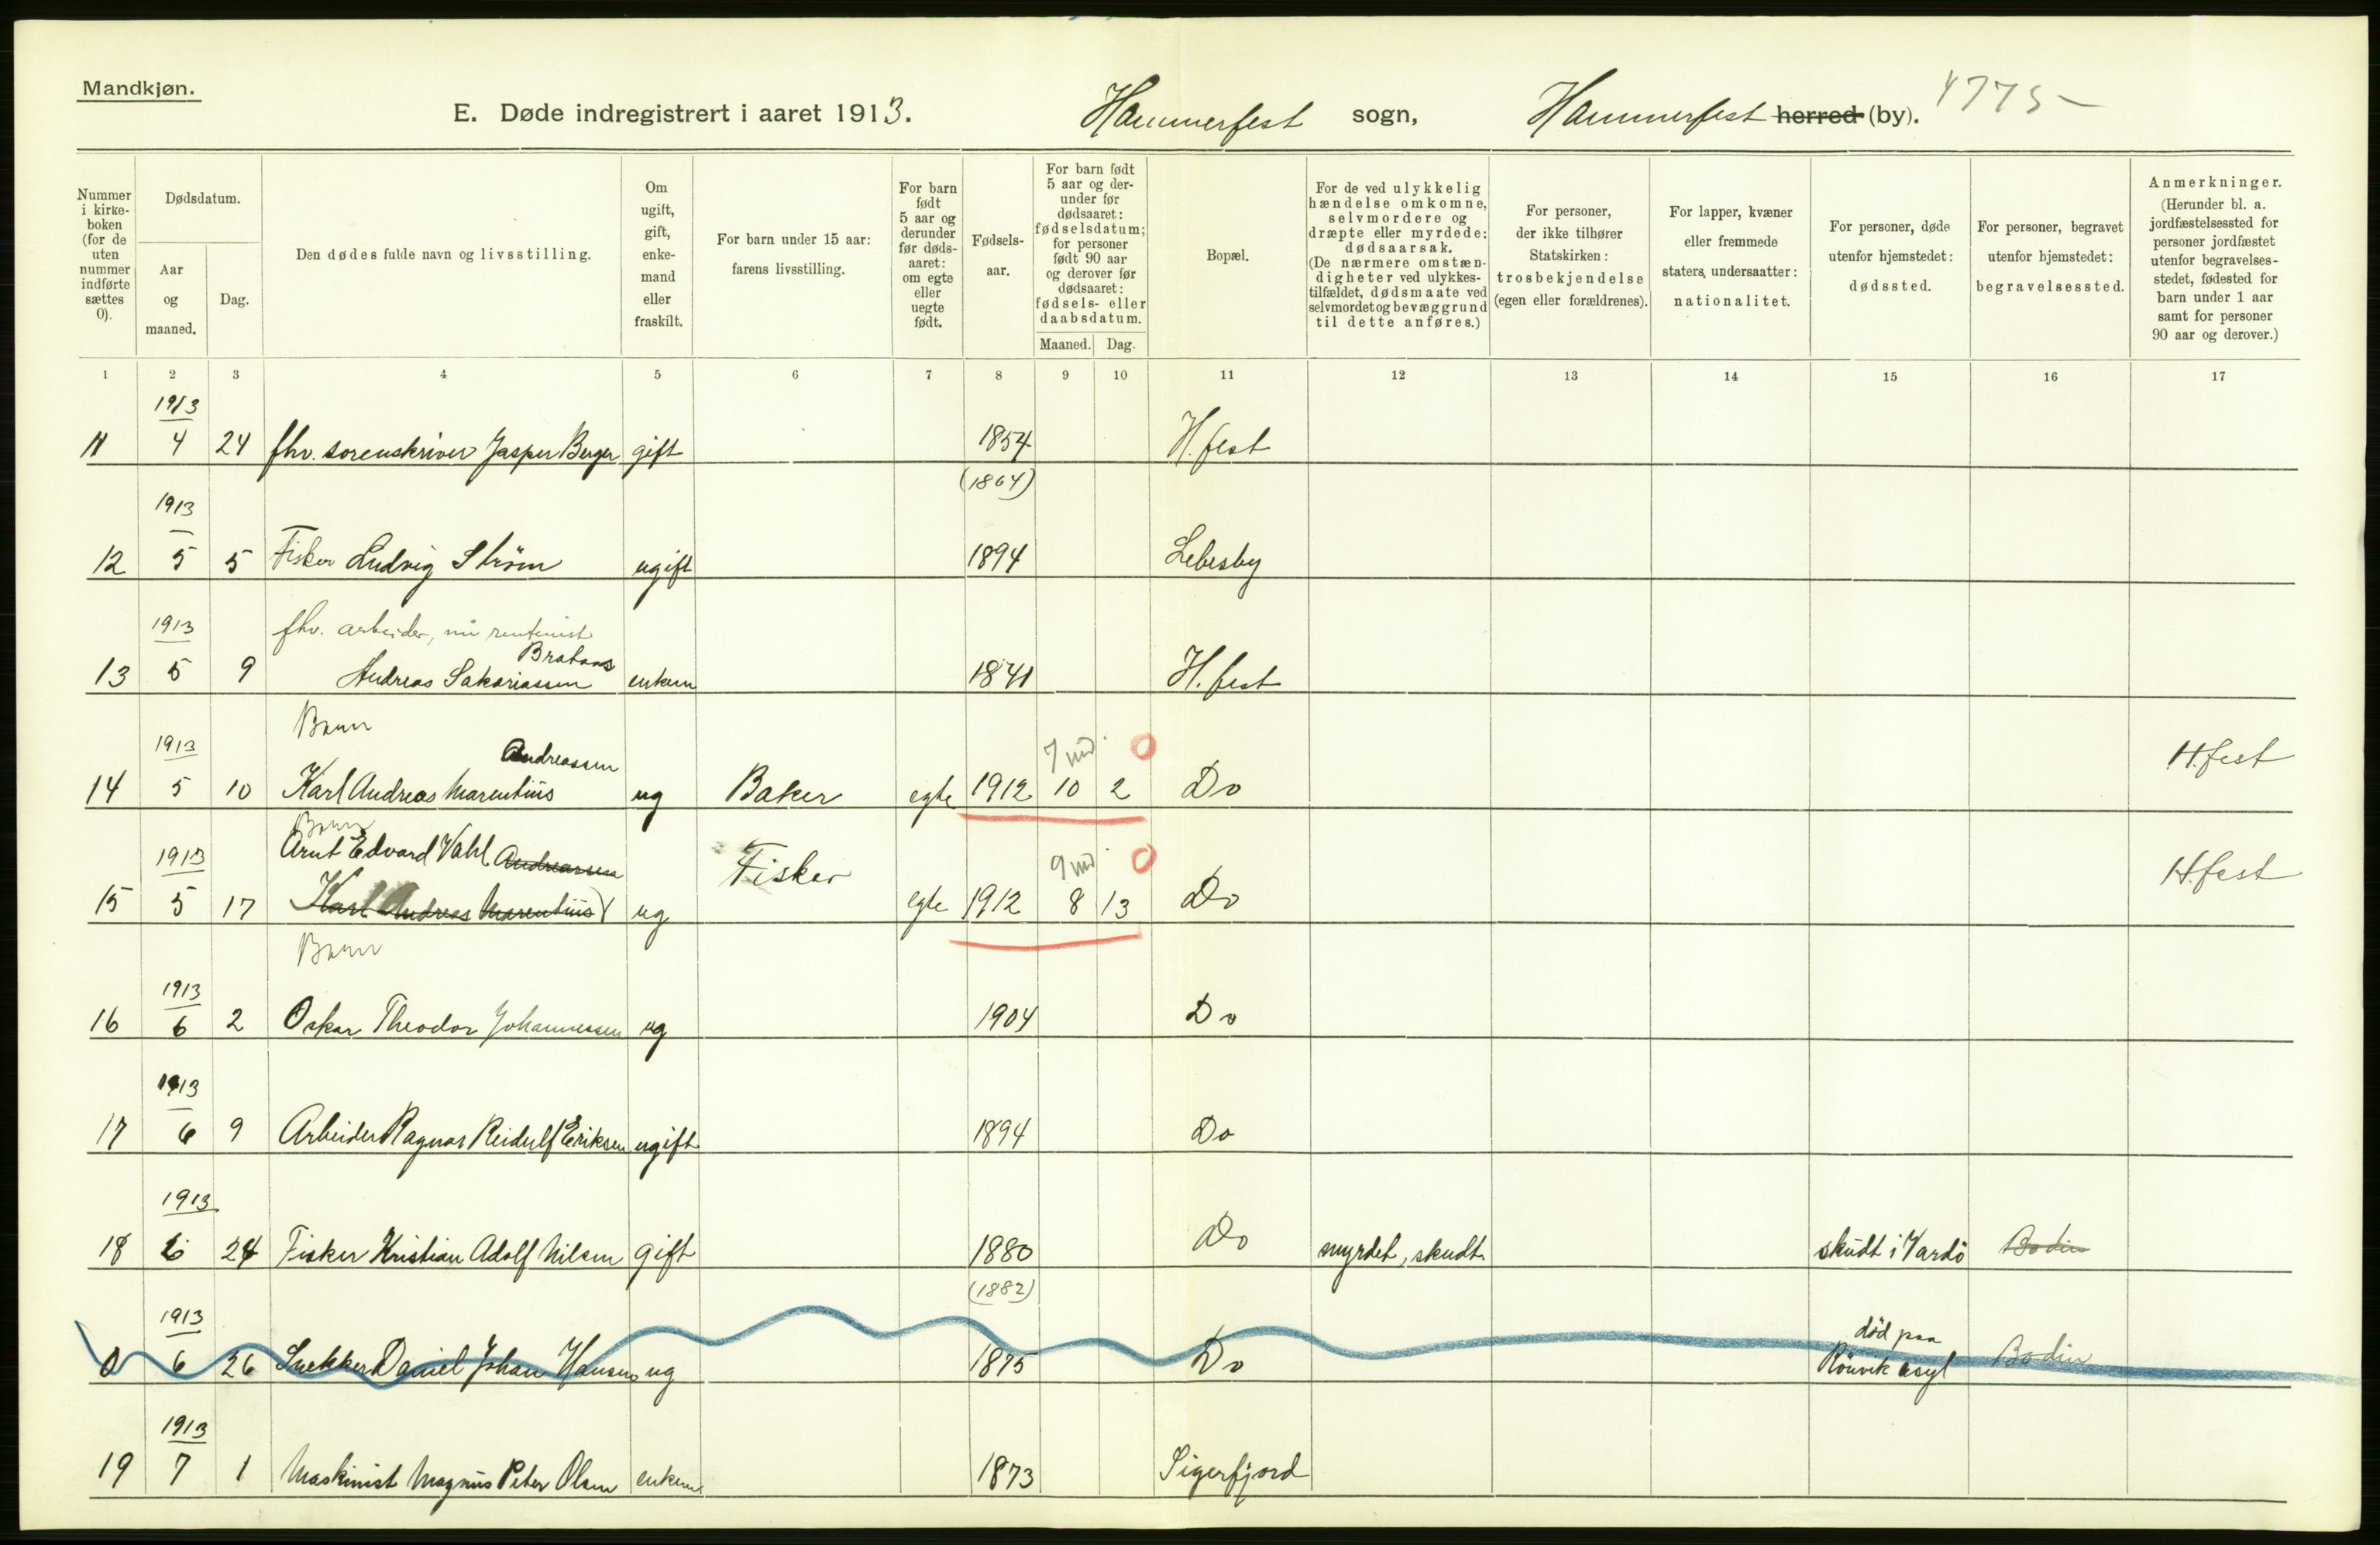 Mandkjøn.
E. Døde indregistrert i aaret 1913. Hammerfest sogn, Hammerfest herred (by). 4775
Nummer i kirke-boken (for de uten nummer indførte sættes 0).
Dødsdatum.
Aar og maaned.
Dag.
Den dødes fulde navn og livsstilling.
Om ugift, gift, enke-mand eller fraskilt.
For barn under 15 aar: farens livsstilling.
For barn født 5 aar og derunder før døds-aaret: om egte eller uegte født.
Fødsels-aar.
For barn født 5 aar og der-under før dødsaaret: fødselsdatum; for personer født 90 aar og derover før dødsaaret: fødsels- eller daabsdatum.
Maaned. Dag.
Bopæl.
For de ved ulykkelig hændelse omkomne, selvmordere og dræpte eller myrdede: dødsaarsak. (De nærmere omstæn-digheter ved ulykkes-tilfældet, dødsmaate ved selvmordet og bevæggrund til dette anføres.)
For personer, der ikke tilhører Statskirken: trosbekjendelse (egen eller forældrenes).
For lapper, kvæner eller fremmede staters, undersaatter: nationalitet.
For personer, døde utenfor hjemstedet: dødssted.
For personer, begravet utenfor hjemstedet: begravelsessted.
Anmerkninger. (Herunder bl. a. jordfæstelsessted for personer jordfæstet utenfor begravelses-stedet, fødested for barn under 1 aar samt for personer 90 aar og derover.)
1 2 3 4 5 6 7 8 9 10 11 12 13 14 15 16 17
1913
11 4 24 fhv. sorenskriver Jasper Berger gift 1854 H.fest
(1864)
1913
12 5 5 Fisker Ludvig Strøm ugift 1894 Lebesby
1913 fhv. arbeider, nu rentenist
Brataas
13 5 9 Andreas Sakariassen enkem 1841 H.fest
Barn
1913 Andreassen 7 md. 0 H.fest
14 5 10 Karl Andreas Marentius ug Baker egte 1912 10 2 Do
Barn
1913 Arnt Edvard Vahl Andreassen Fisker 9 md. 0 H.fest
15 5 17 Karl Andreas Marentius ug egte 1912 8 13 Do
Barn
1913
16 6 2 Oskar Theodor Johannessen ug 1904 Do
1913
17 6 9 Arbeider Ragnar Reidulf Eriksen ugift 1894 Do
1913
18 6 24 Fisker Kristian Adolf Nilsen gift 1880 Do myrdet, skudt. skudt i Vardö Bodin
(1882)
1913 död paa
0 6 26 Snekker Daniel Johan Hansen ug 1875 Do Rönvik asyl Bodin
1913
19 7 1 Maskinist Magnus Peter Olsen enkem 1873 Sigerfjord